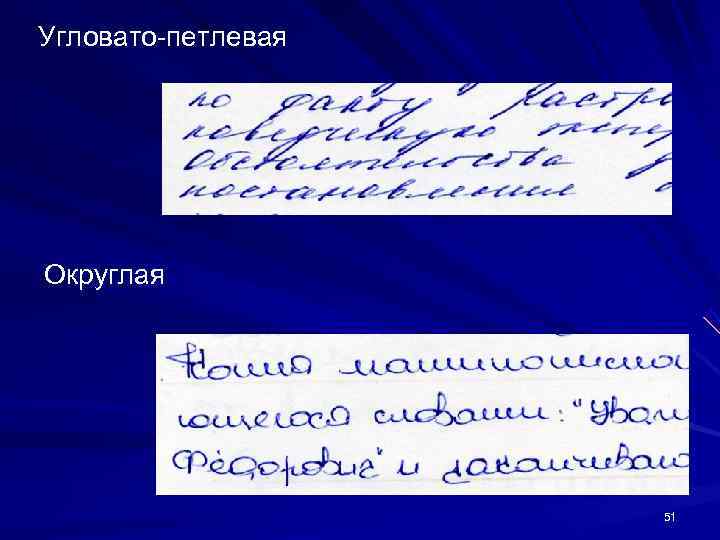 Угловато-петлевая
по факту растр
поведческую экспер
Обстоятельства
постановлении
Округлая
Копия машинописно
ющегося словами: "Ува
Фёдорович" и заканчиваю
51